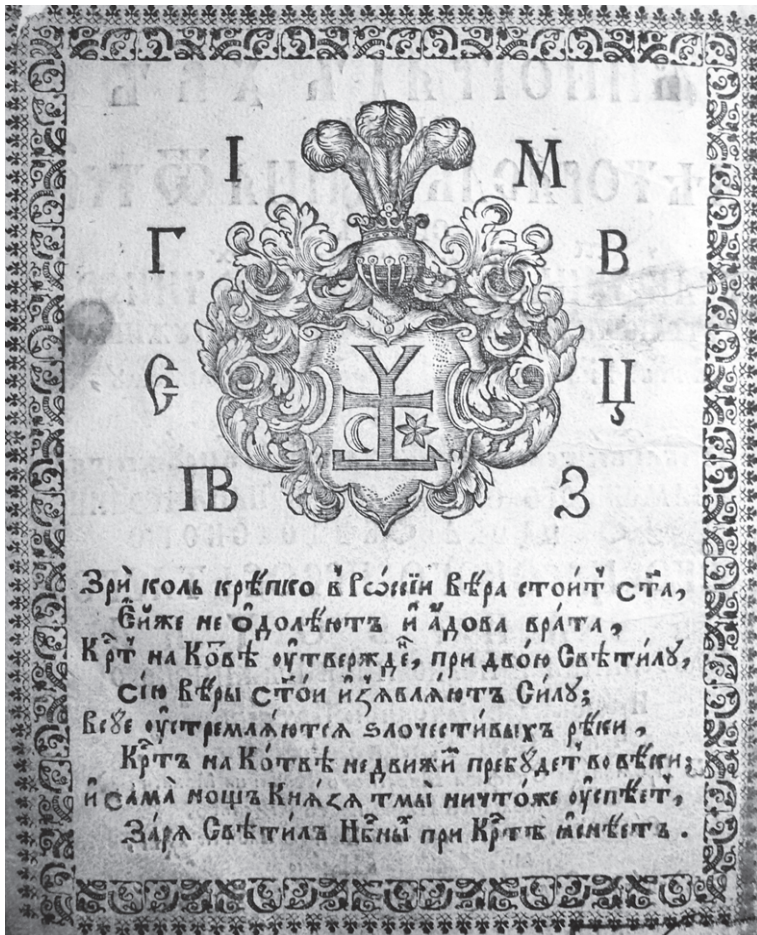 І М
Г В
Є Ц
ПВ З
Зрѝ коль крѣ́пко в̾ Рѡссі́и Вѣ́ра стои́т̾ ст҃а,
Е҆йже не ѡ҆долѣ́ютъ и҆ а҆́дова врата̀,
Крⷭ҇тъ на Ко́твѣ ѹ҆твержде́нъ, при двою̀ Свѣти́лꙋ,
сїю̀ Вѣ́ры ст҃ои и҆з̾ѧвлѧ́ютъ Си́лꙋ;
Всꙋ́е ѹ҆стремлѧ́ютсѧ ѕлочести́выхъ рѣ́ки,
Крⷭ҇тъ на Ко́твѣ недви́жим̾ пребꙋ́дет̾ во вѣ́ки;
и҆ сама̀ мощъ Кнѧ́ѕѧ тмы̀ ничто́же ѹ҆спѣ́ет̾,
Зарѧ̀ Свѣти́лъ Нбⷭ҇ныхъ при Крⷭ҇тѣ ꙗ҆снѣ́етъ .